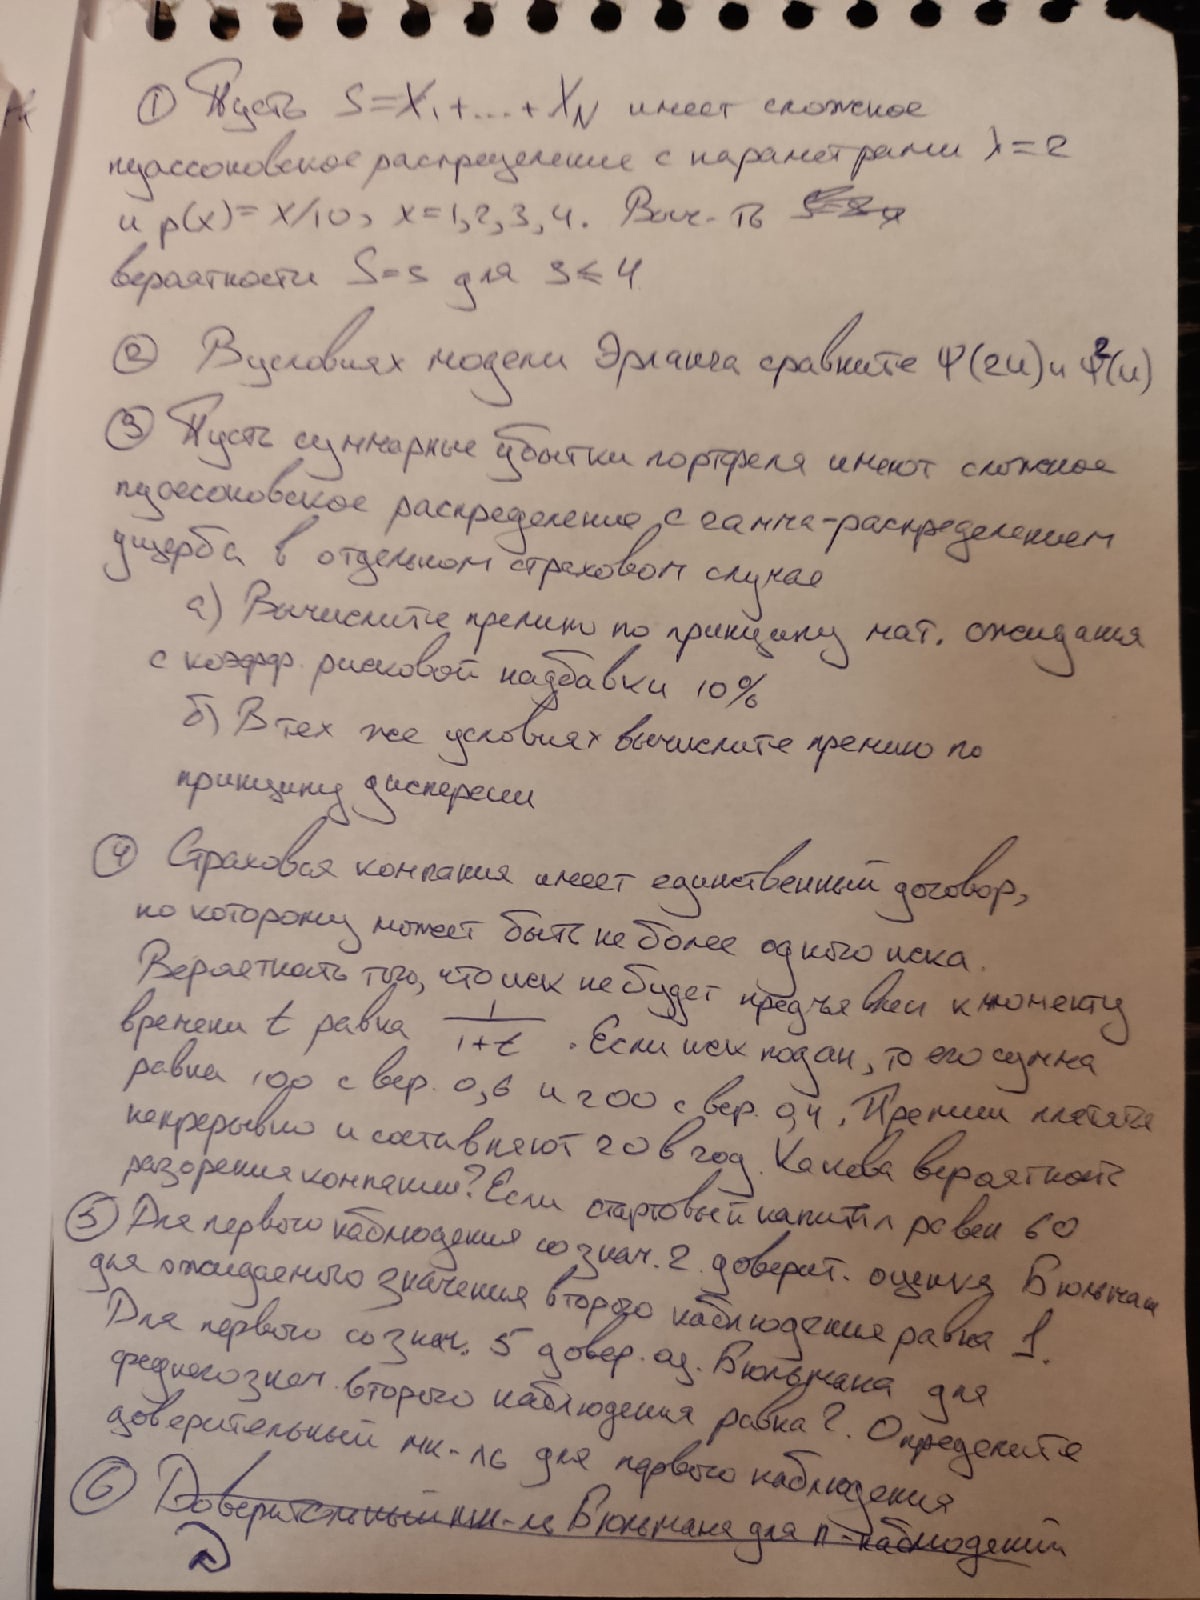 ① Пусть S=X₁+...+X_N имеет сложное
пуассоновское распределение с параметрами λ=2
и p(x)=x/10, x=1,2,3,4. Выч-ть
вероятности S=s для s≤4
② В условиях модели Эрланга сравните Ψ(2u) и Ψ²(u)
③ Пусть суммарные убытки портфеля имеют сложное
пуассоновское распределение с гамма-распределением
ущерба в отдельном страховом случае
а) Вычислите премию по принципу мат. ожидания
с коэфф. рисковой надбавки 10%
б) В тех же условиях вычислите премию по
принципу дисперсии
④ Страховая компания имеет единственный договор,
по которому может быть не более одного иска.
Вероятность того, что иск не будет предъявлен к моменту
времени t равна 1/(1+t). Если иск подан, то его сумма
равна 100 с вер. 0,6 и 200 с вер. 0,4. Премии платят
непрерывно и составляют 20 в год. Какова вероятность
разорения компании? Если стартовый капитал равен 60
⑤ Для первого наблюдения со знач. 2 доверит. оценка Бюльмана
для ожидаемого значения второго наблюдения равна 1.
Для первого со знач. 5 довер. оц. Бюльмана для
среднего знач. второго наблюдения равна 2. Определите
доверительный мн-ль для первого наблюдения
⑥ Доверительный мн-ль Бюльмана для n-наблюдений